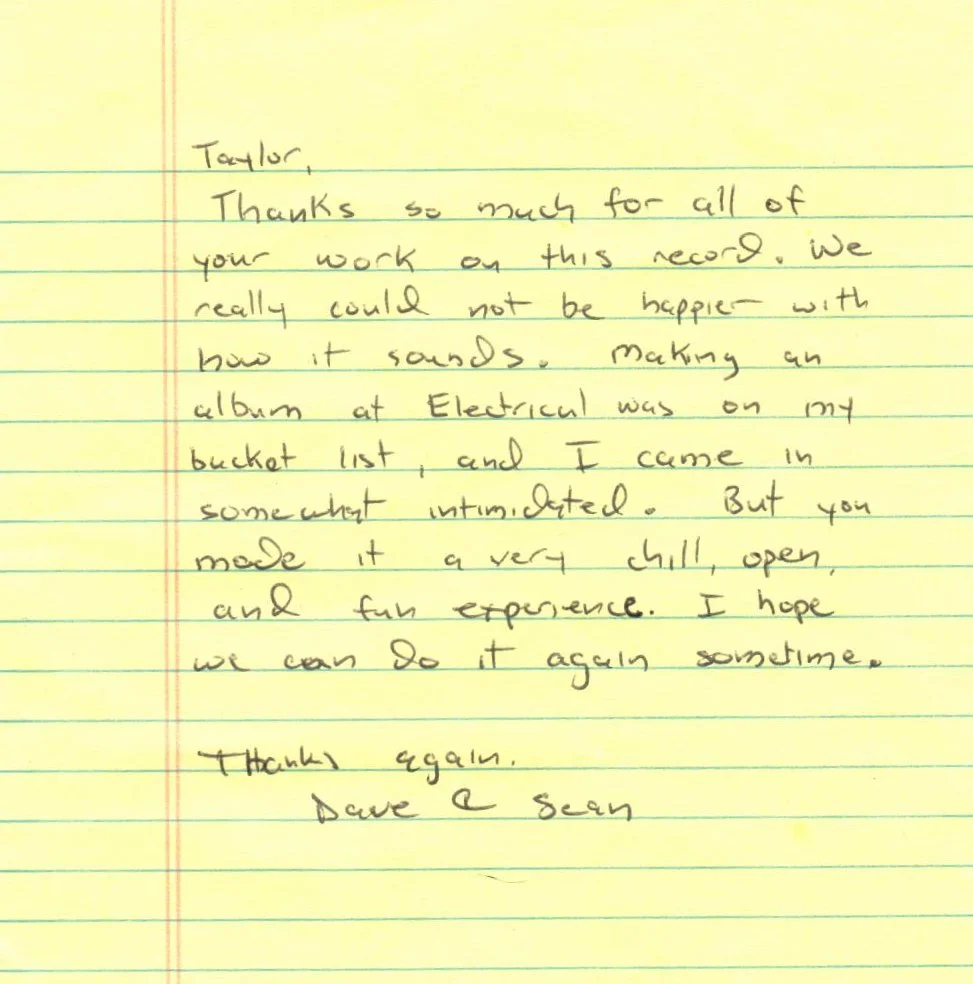 Taylor,
Thanks so much for all of
your work on this record. We
really could not be happier with
how it sounds. Making an
album at Electrical was on my
bucket list, and I came in
somewhat intimidated. But you
made it a very chill, open,
and fun experience. I hope
we can do it again sometime.
Thanks again.
Dave & Sean